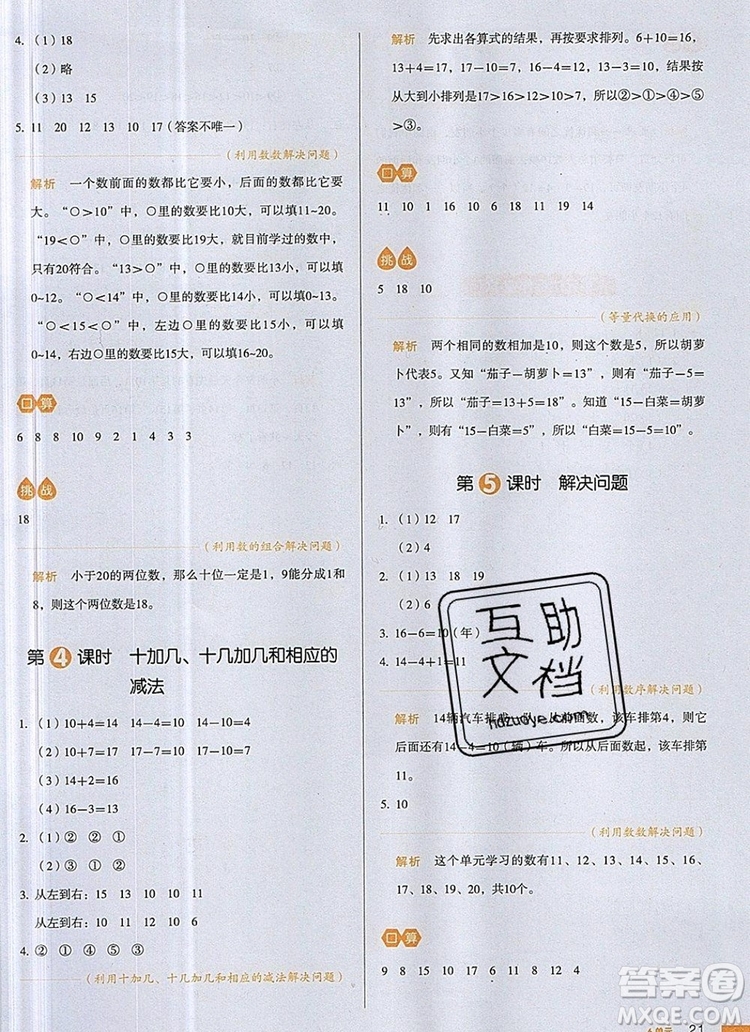 4. (1) 18
(2) 略
(3) 13 15
5. 11 20 12 13 10 17(答案不唯一)
(利用数数解决问题)
解析 一个数前面的数都比它要小,后面的数都比它要
大。“○>10”中,○里的数要比10大,可以填11~20。
“19<○”中,○里的数要比19大,就目前学过的数中,
只有20符合。“13>○”中,○里的数要比13小,可以填
0~12。“○<14”中,○里的数要比14小,可以填0~13。
“○>15>○”中,左边○里的数要比15小,可以填
0~14,右边○里的数要比15大,可以填16~20。
口算
6 8 8 10 9 2 1 4 3 3
挑战
18
(利用数的组合解决问题)
解析 小于20的两位数,那么十位一定是1,9能分成1和
8,则这个两位数是18。
第4课时 十加几、十几加几和相应的
减法
1. (1) 10+4=14 14-4=10 14-10=4
(2) 10+7=17 17-7=10 17-10=7
(3) 14+2=16
(4) 16-3=13
2. (1) ① ② ①
(2) ③ ② ①
3. 从左到右:15 13 10 10 11
从左到右:11 10 16 6 12
4. ② ① ④ ⑤ ③
(利用十加几、十几加几和相应的减法解决问题)
解析 先求出各算式的结果,再按要求排列。6+10=16,
13+4=17,17-10=7,16-4=12,13-3=10,结果按
从大到小排列是17>16>12>10>7,所以②>①>④>⑤
>③。
口算
11 10 1 16 10 6 18 11 19 14
挑战
5 18 10
(等量代换的应用)
解析 两个相同的数相加是10,则这个数是5,所以胡萝
卜代表5。又知“茄子-胡萝卜=13”,则“茄子-5=
13”,所以“茄子=13+5=18”。知道“15-白菜=胡萝
卜”,则“15-白菜=5”,所以“白菜=15-5=10”。
第5课时 解决问题
1. (1) 12 17
(2) 4
2. (1) 13 18 19
(2) 6
3. 16-6=10(年)
4. 14-4+1=11
(利用数序解决问题)
解析 14辆汽车排成一队,从前面数,该车排第4,则它
后面还有14-4=10(辆)车。所以从后面数起,该车排第
11。
5. 10
(利用数数解决问题)
解析 这个单元学习的数有11、12、13、14、15、16、
17、18、19、20,共10个。
口算
9 8 15 10 17 16 8 15 12 4
互助
文档
hdzuoye.com
答案圈
MXQE.COM
21